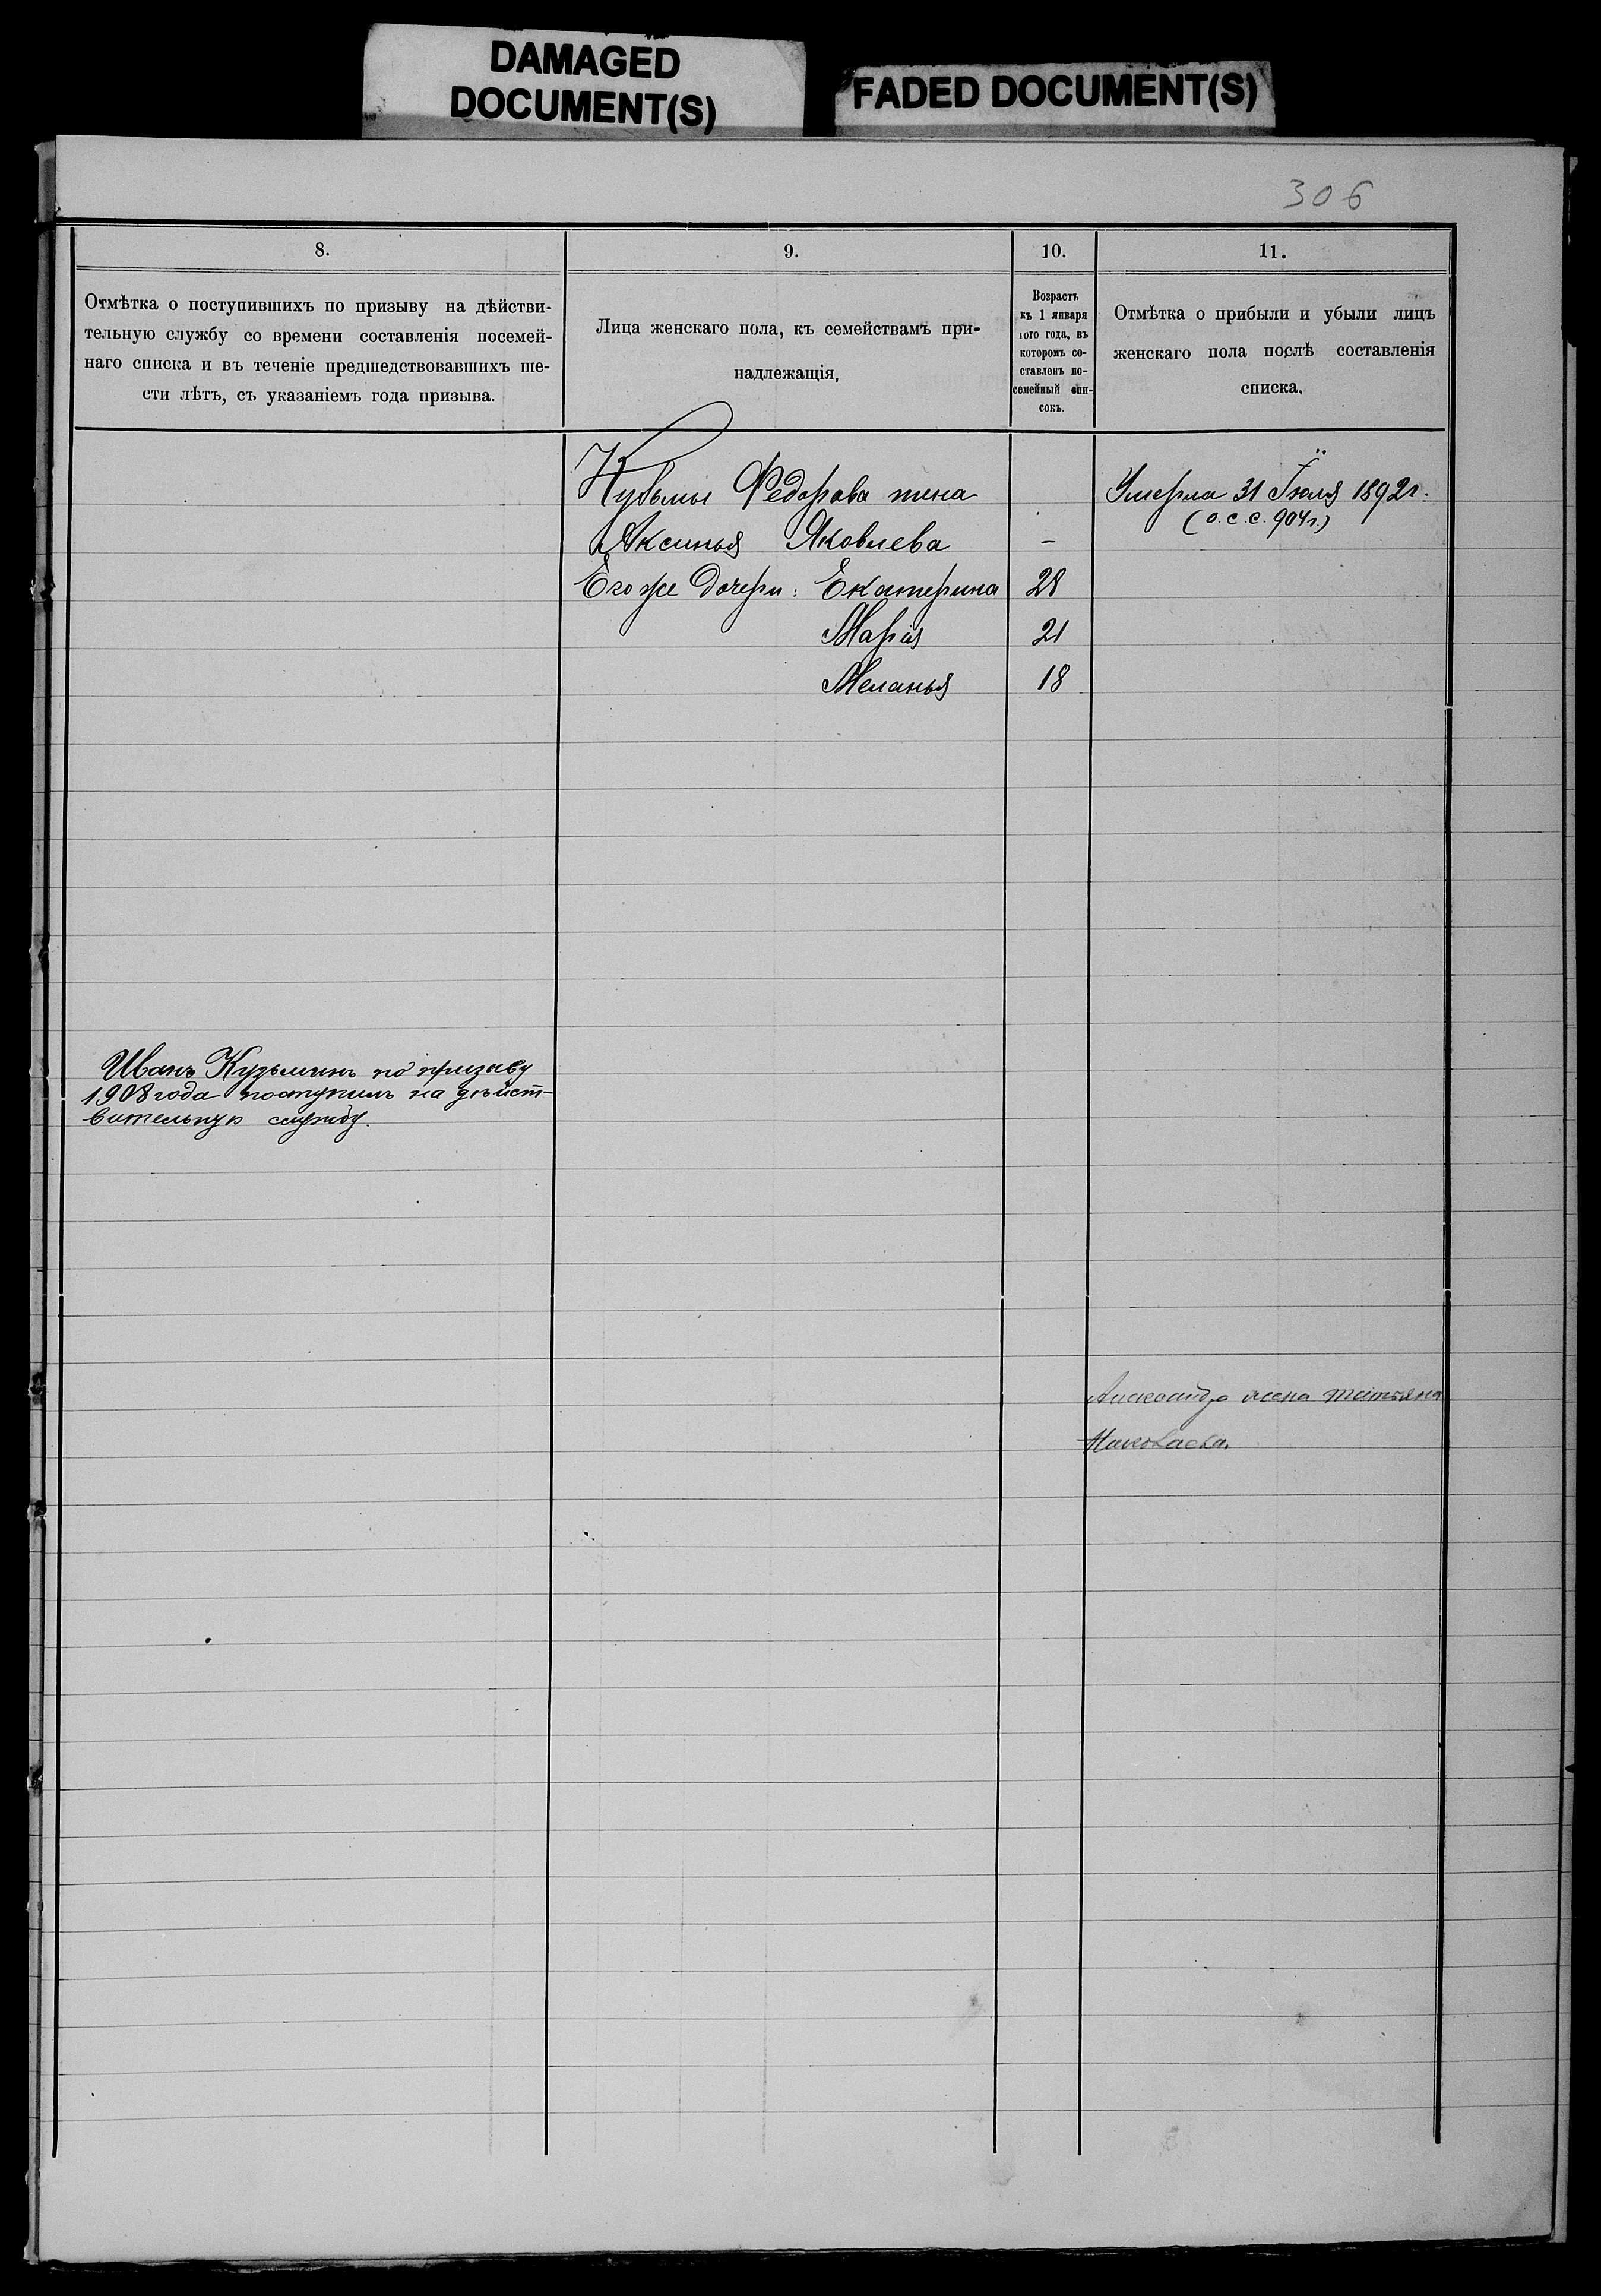 DAMAGED
DOCUMENT(S)
FADED DOCUMENT(S)
306
8.
Отмѣтка о поступившихъ по призыву на дѣйстви-
тельную службу со времени составленія посемей-
наго списка и въ теченіе предшедствовавшихъ ше-
сти лѣтъ, съ указаніемъ года призыва.
9.
Лица женскаго пола, къ семействамъ при-
надлежащія.
10.
Возрастъ
къ 1 января
того года, въ
которомъ со-
ставленъ по-
семейный спи-
сокъ.
11.
Отмѣтка о прибыли и убыли лицъ
женскаго пола послѣ составленія
списка.
Кузьмы Федорова жена
Умерла 31 Іюля 1892г.
(о.с.с. 904г.)
Аксинья Яковлева –
Его же дочери: Екатерина 28
Марія 21
Меланья 18
Иванъ Кузьминъ по призыву
1908 года поступилъ на дѣйст-
вительную службу.
Александра жена Татьяна